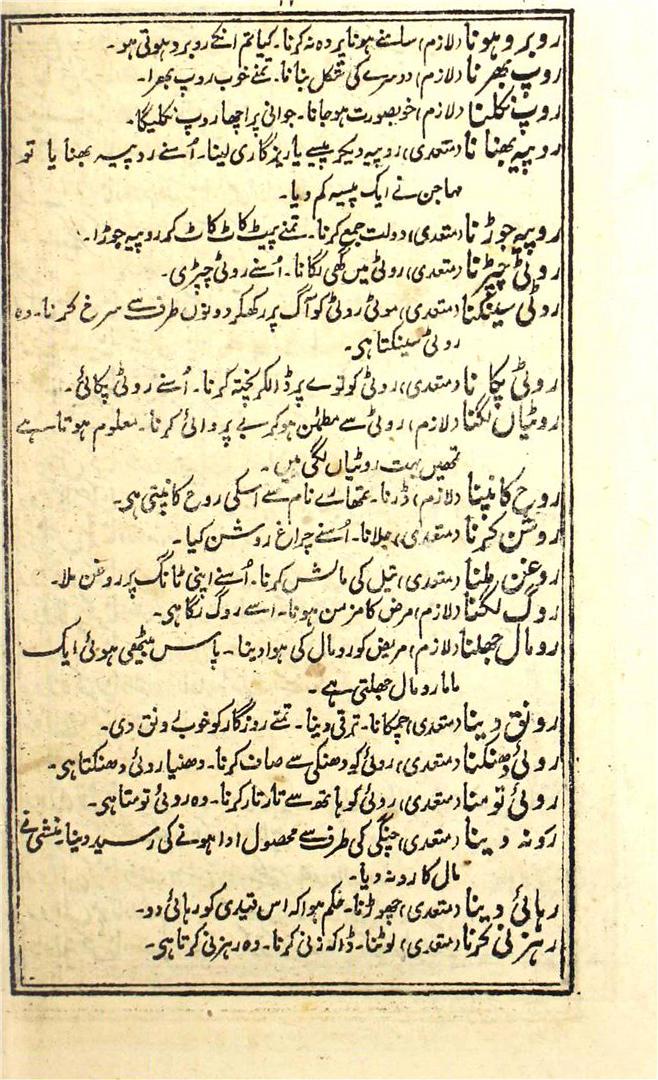 روبرو ہونا (لازم) سامنے ہونا پردہ نہ کرنا۔ کیا تم انکے روبرو ہوتی ہو۔
روپ بھرنا (لازم) دوسرے کی شکل بنانا۔ تمنے خوب روپ بھرا۔
روپ نکلنا (لازم) خوبصورت ہوجانا۔ جوانی پر اچھا روپ نکلیگا۔
روپیہ بھنانا (متعدی) روپیہ دیکر پیسے یا ریزگاری لینا۔ اُسنے روپیہ بھنایا تو
مہاجن نے ایک پیسہ کم دیا۔
روپیہ جوڑنا (متعدی) دولت جمع کرنا۔ تمنے پیٹ کاٹ کاٹ کر روپیہ جوڑا۔
روٹی چپڑنا (متعدی) روٹی میں گھی لگانا۔ اُسنے روٹی چپڑی۔
روٹی سینکنا (متعدی) موٹی روٹی کو آگ پر رکھکر دونوں طرف سے سرخ کرنا۔ وہ
روٹی سینکتا ہی۔
روٹی پکانا (متعدی) روٹی کو توے پر ڈالکر پختہ کرنا۔ اُسنے روٹی پکائی۔
روٹیاں لگنا (لازم) روٹی سے مطمئن ہوکر بے پروائی کرنا۔ معلوم ہوتا ہے
تمھیں بہت روٹیاں لگی ہیں۔
روح کانپنا (لازم) ڈرنا۔ تمھارے نام سے اسکی روح کانپتی ہی۔
روشن کرنا (متعدی) جلانا۔ اُسنے چراغ روشن کیا۔
روغن ملنا (متعدی) تیل کی مالش کرنا۔ اُسنے اپنی ٹانگ پر روغن ملا۔
روگ لگنا (لازم) مرض کا مزمن ہونا۔ اسے روگ لگا ہی۔
رومال جھلنا (لازم) مریض کو رومال کی ہوا دینا۔ پاس بیٹھی ہوئی ایک
ماما رومال جھلتی ہے۔
رونق دینا (متعدی) چمکانا۔ ترقی دینا۔ تمنے روزگار کو خوب رونق دی۔
روئی دھنکنا (متعدی) روئی کو دھنکی سے صاف کرنا۔ دھنیا روئی دھنکتا ہی۔
روئی تومنا (متعدی) روئی کو ہاتھ سے تار تار کرنا۔ وہ روئی تومتا ہی۔
رَونہ دینا (متعدی) چنگی کی طرف سے محصول ادا ہونے کی رسید دینا۔ منشی نے
مال کا رونہ دیا۔
رہائی دینا (متعدی) چھوڑنا۔ حکم ہوا کہ اس قیدی کو رہائی دو۔
رہزنی کرنا (متعدی) لوٹنا۔ ڈاکہ زنی کرنا۔ وہ رہزنی کرتا ہی۔